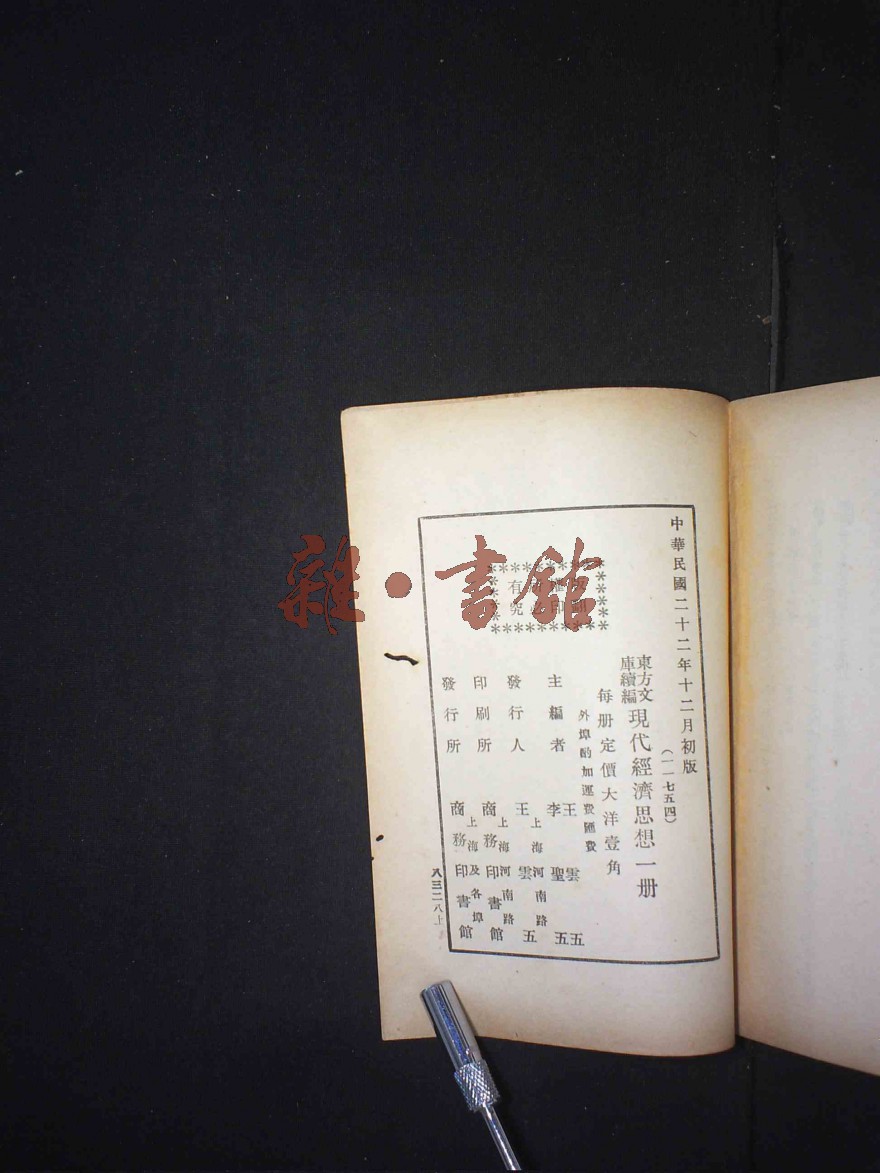 中華民國二十二年十二月初版
(一一七五四)
東方文庫續編 現代經濟思想一册
每册定價大洋壹角
外埠酌加運費匯費
主編者 王雲五 李聖五
發行人 上海河南路 王雲五
印刷所 上海河南路 商務印書館
發行所 上海及各埠 商務印書館
有
究
印
八三二八上
雜·書館